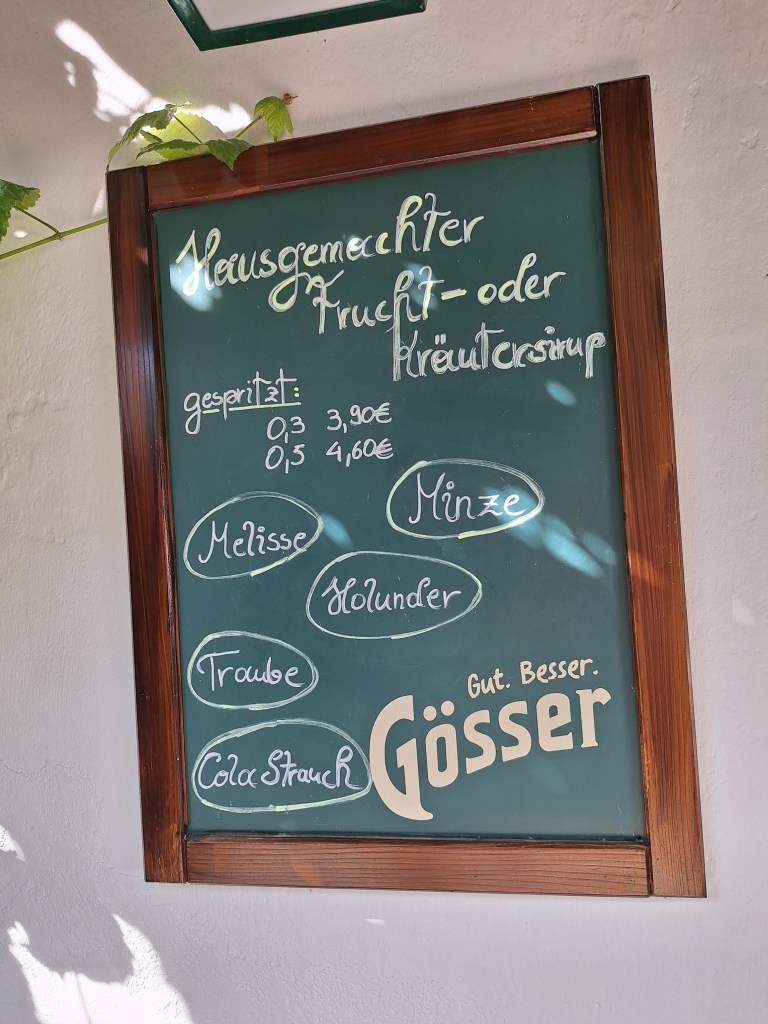 Hausgemachter
Frucht- oder
Kräutersirup
gespritzt:
0,3 3,90€
0,5 4,60€
Minze
Melisse
Holunder
Traube
Cola Strauch
Gut. Besser.
Gösser